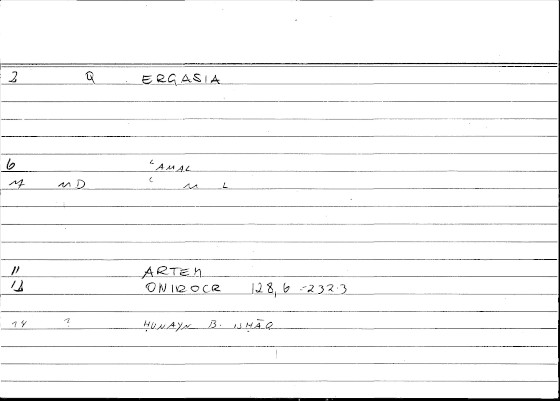 2 Q ERGASIA
6 ʿAMAL
M MD ʿ M L
11 ARTEM
12 ONIROCR 128,6 - 232.3
14 ? ḤUNAYN B. ISḤĀQ